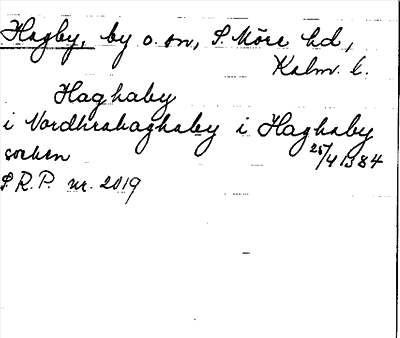 Hagby, by o. sn, S. Möre hd,
Kalm. l.
Haghaby
i Nordhrahaghaby i Haghaby
socken 25/4 1384
S.R.P. nr. 2019